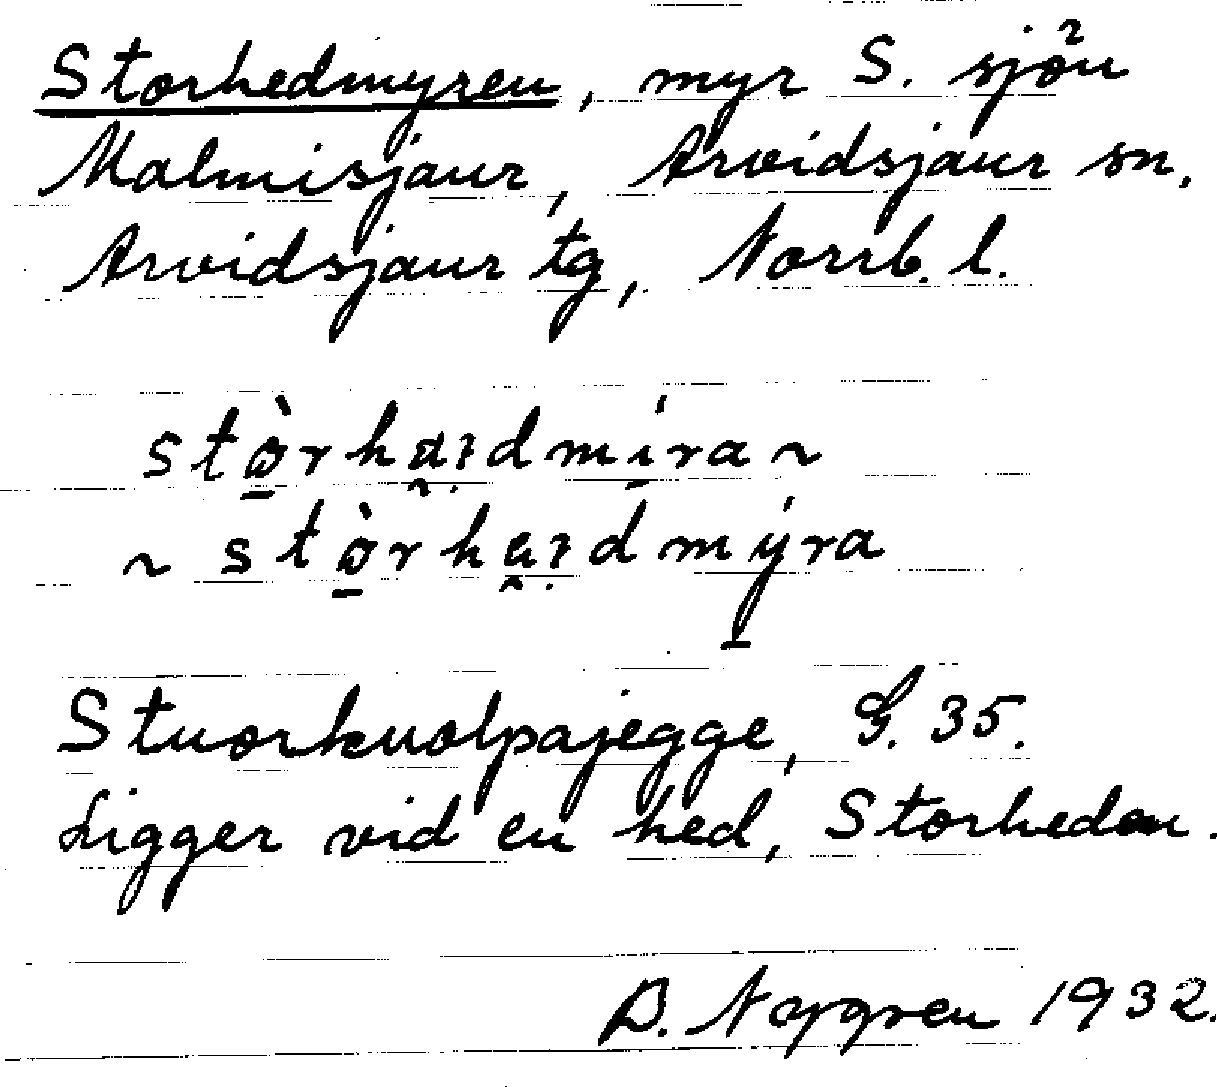 Storhedmyren, myr S. sjön
Malmisjaur, Arvidsjaur sn.
Arvidsjaur tg, Norrb. l.
stòrhaidmíra ~
~ stòrhaidmýra
Stuorkuolpajegge, G. 35.
Ligger vid en hed, Storheden.
B. Nygren 1932.